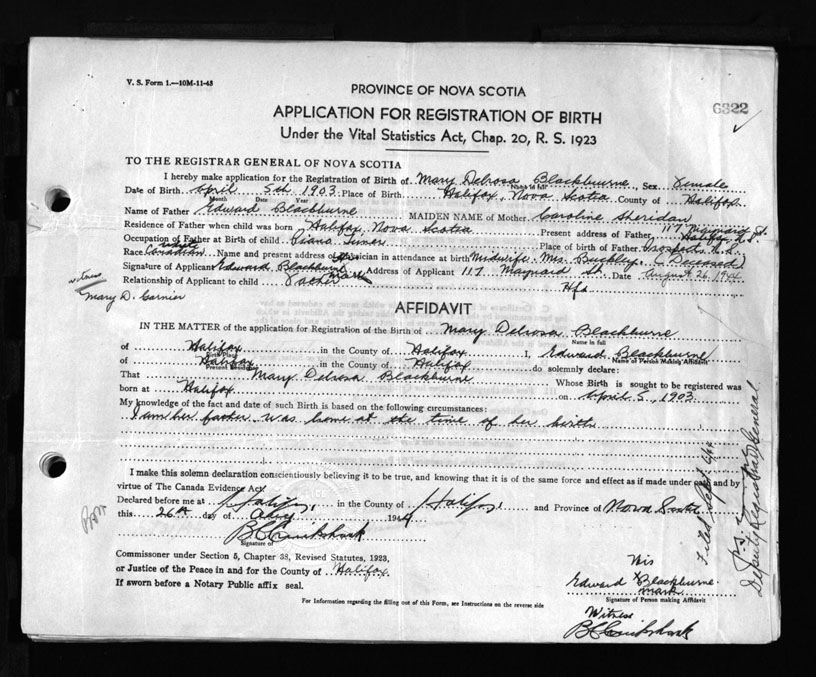 V. S. Form 1.—10M-11-43
PROVINCE OF NOVA SCOTIA
6322
APPLICATION FOR REGISTRATION OF BIRTH
Under the Vital Statistics Act, Chap. 20, R. S. 1923
TO THE REGISTRAR GENERAL OF NOVA SCOTIA
I hereby make application for the Registration of Birth of Mary Delrosa Blackburne, Sex Female
Name in full
Date of Birth April 5th 1903 Place of Birth Halifax, Nova Scotia County of Halifax
Month Date Year
Name of Father Edward Blackburne MAIDEN NAME of Mother Caroline Sheridan
117 Maynard St.
Residence of Father when child was born Halifax Nova Scotia Present address of Father Halifax N.S.
Occupation of Father at Birth of child Piano Tuner Place of Birth of Father Prospect N.S.
white
Race Canadian Name and present address of Physician in attendance at birth Midwife Mrs. Buckley (Deceased)
Signature of Applicant Edward Blackburne mark Address of Applicant 117 Maynard St. Date August 26 1944
Relationship of Applicant to child Father Hfx
witness
Mary D. Garnier
AFFIDAVIT
IN THE MATTER of the application for Registration of the Birth of Mary Delrosa Blackburne
Name in full
of Halifax in the County of Halifax I, Edward Blackburne
Birth Place Name of Person Making Affidavit
of Halifax in the County of Halifax do solemnly declare:
Present
That Mary Delrosa Blackburne Whose Birth is sought to be registered was
born at Halifax on April 5, 1903
My knowledge of the fact and date of such Birth is based on the following circumstances:
I am her father was home at the time of her birth
I make this solemn declaration conscientiously believing it to be true, and knowing that it is of the same force and effect as if made under oath and by
virtue of The Canada Evidence Act.
Declared before me at Halifax, in the County of Halifax, and Province of Nova Scotia
this 26th day of Aug 1944
B C Cruikshank
Signature of
Commissioner under Section 5, Chapter 38, Revised Statutes, 1923,
or Justice of the Peace in and for the County of Halifax
If sworn before a Notary Public affix seal.
For Information regarding the filling out of this Form, see Instructions on the reverse side
His
Edward X Blackburne
mark
Signature of Person making Affidavit
Witness
B C Cruikshank
Filed Sept
Deputy Registrar General